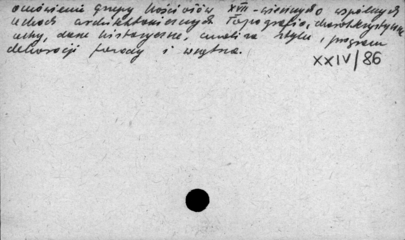 omówienie grupy kościołów XVII-wiecznych o wspólnych
cechach architektonicznych. Topografia, charakterystyczne
cechy, dane historyczne, analiza stylu, program
dekoracji fasady i wnętrza.
XXIV/86